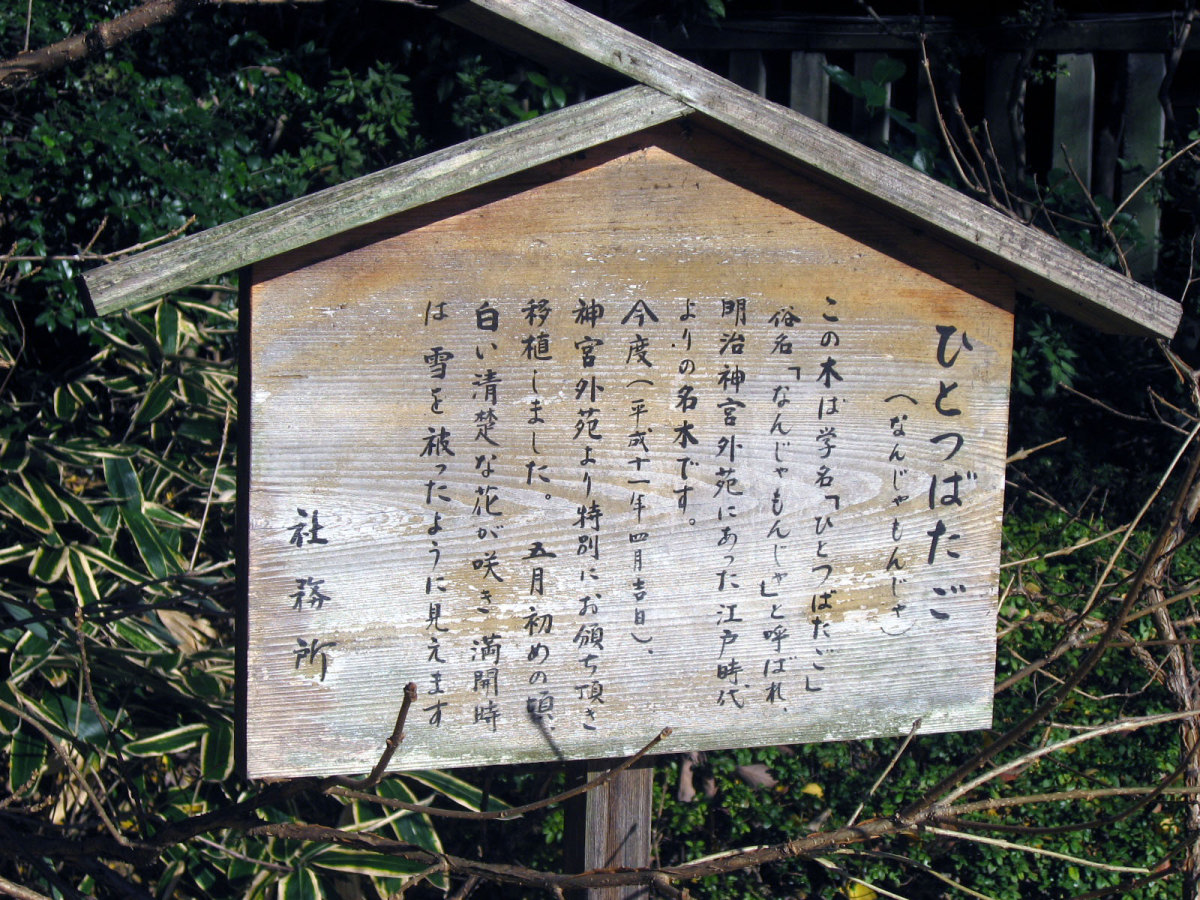 ひとつばたご
(なんじゃもんじゃ)
この木は学名「ひとつばたご」
俗名「なんじゃもんじゃ」と呼ばれ、
明治神宮外苑にあった江戸時代
よりの名木です。
今度(平成十一年四月吉日)、
神宮外苑より特別にお頒ち頂き
移植しました。五月初めの頃、
白い清楚な花が咲き満開時
は雪を被ったように見えます
社務所